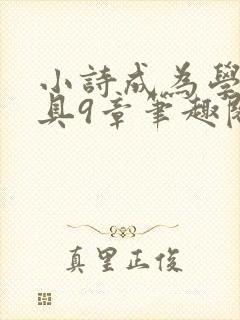 小詩成為學
具9章筆趣閱
真里正俊